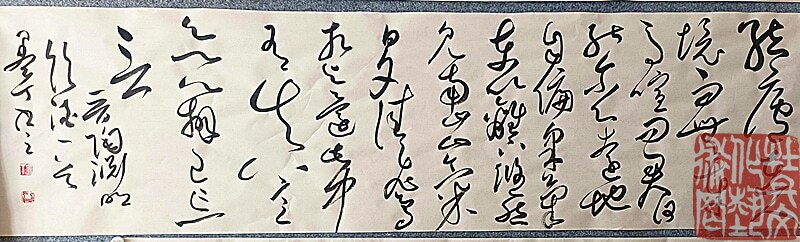 結廬在人
境而無車
馬喧問君何
能尔心遠地
自偏采菊
東籬下悠然
見南山山氣
日夕佳飛鳥
相与還此中
有真意
欲辨已忘
言
晋陶渊明
飲酒一首